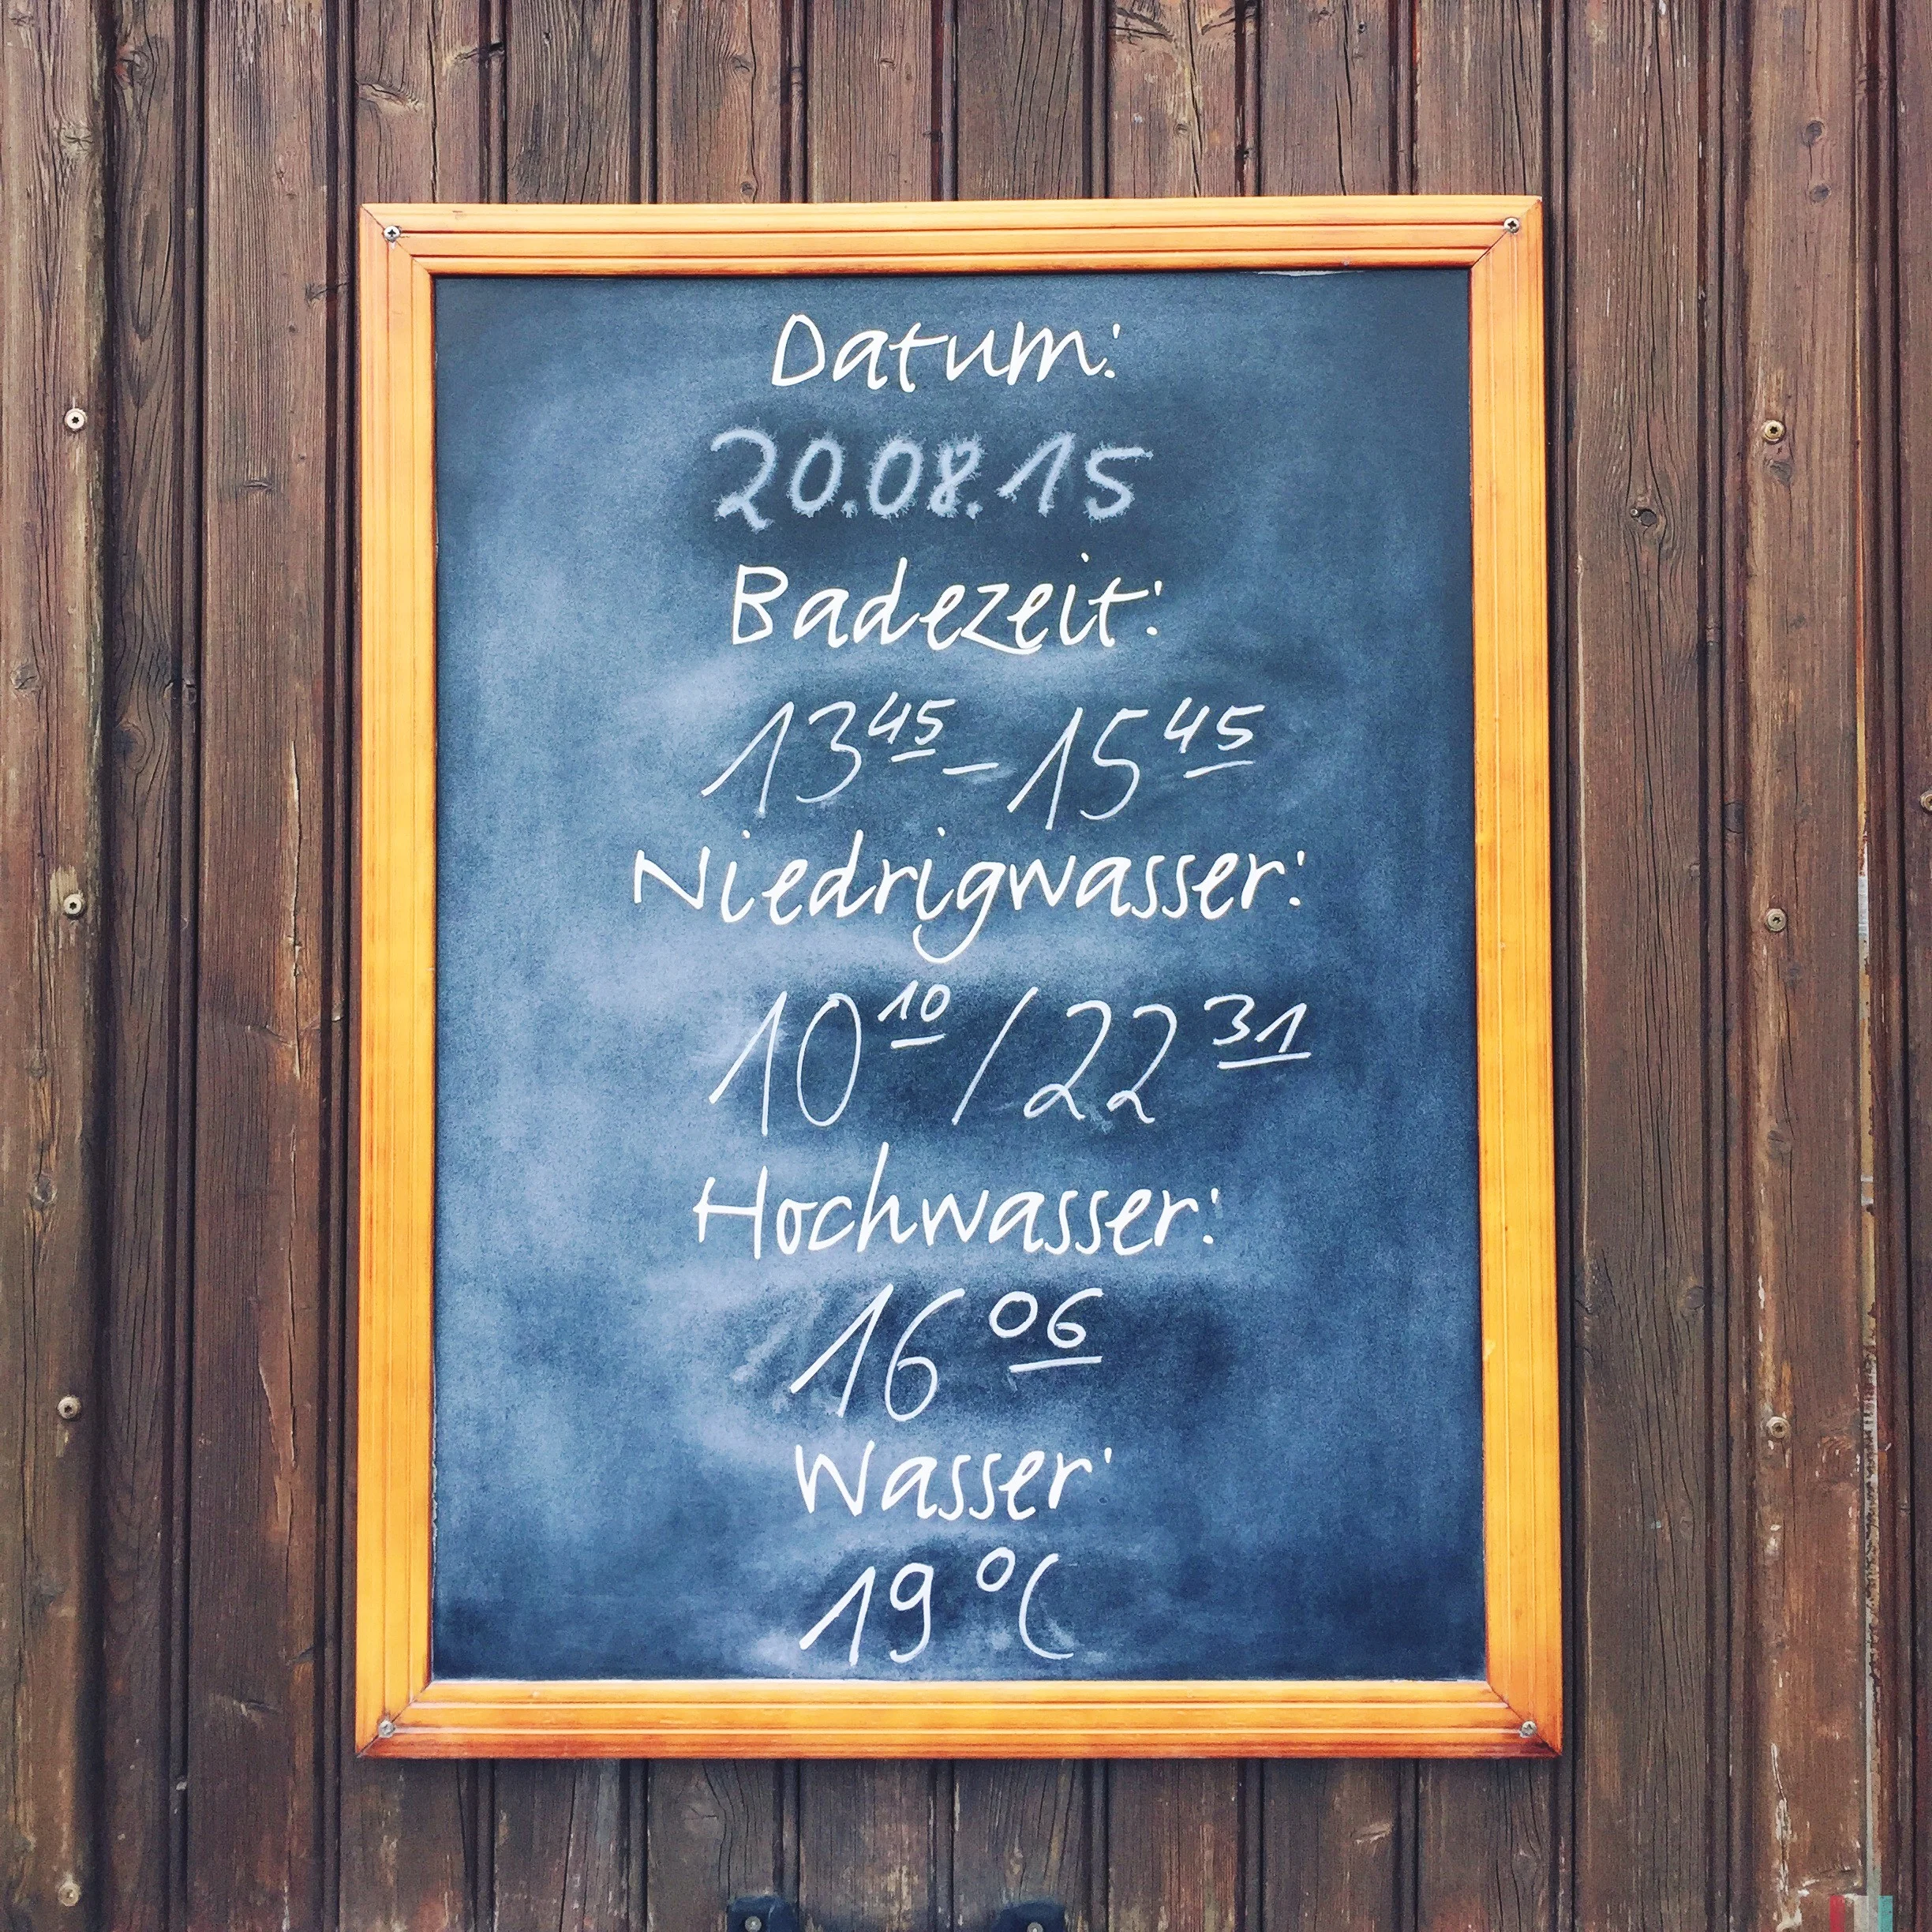 Datum:
20.08.15
Badezeit:
13⁴⁵ – 15⁴⁵
Niedrigwasser:
10¹⁰ / 22³¹
Hochwasser:
16⁰⁶
Wasser:
19 °C